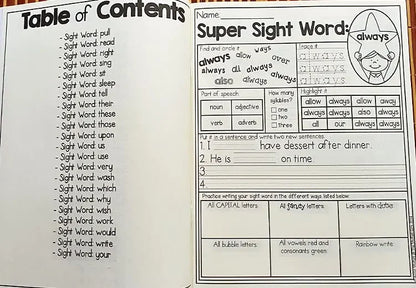 Table of Contents
- Sight Word: pull
- Sight Word: read
- Sight Word: right
- Sight Word: sing
- Sight Word: sit
- Sight Word: sleep
- Sight Word: tell
- Sight Word: their
- Sight Word: these
- Sight Word: those
- Sight Word: upon
- Sight Word: us
- Sight Word: use
- Sight Word: very
- Sight Word: wash
- Sight Word: which
- Sight Word: why
- Sight Word: wish
- Sight Word: work
- Sight Word: would
- Sight Word: write
- Sight Word: your
Name:
Super Sight Word:
always
Find and circle it
always allow ways over
always all always always
also always
Trace it
always
always
always
Part of speech
noun adjective
verb adverb
How many syllables?
one
two
three
Highlight it
allow always allow away
always also always always
all our always always
Put it in a sentence and write two new sentences.
1. I have dessert after dinner.
2. He is on time.
3.
4.
Practice writing your sight word in the different ways listed below.
All CAPITAL letters All fancy letters Letters with dots
All bubble letters All vowels red and consonants green Rainbow write